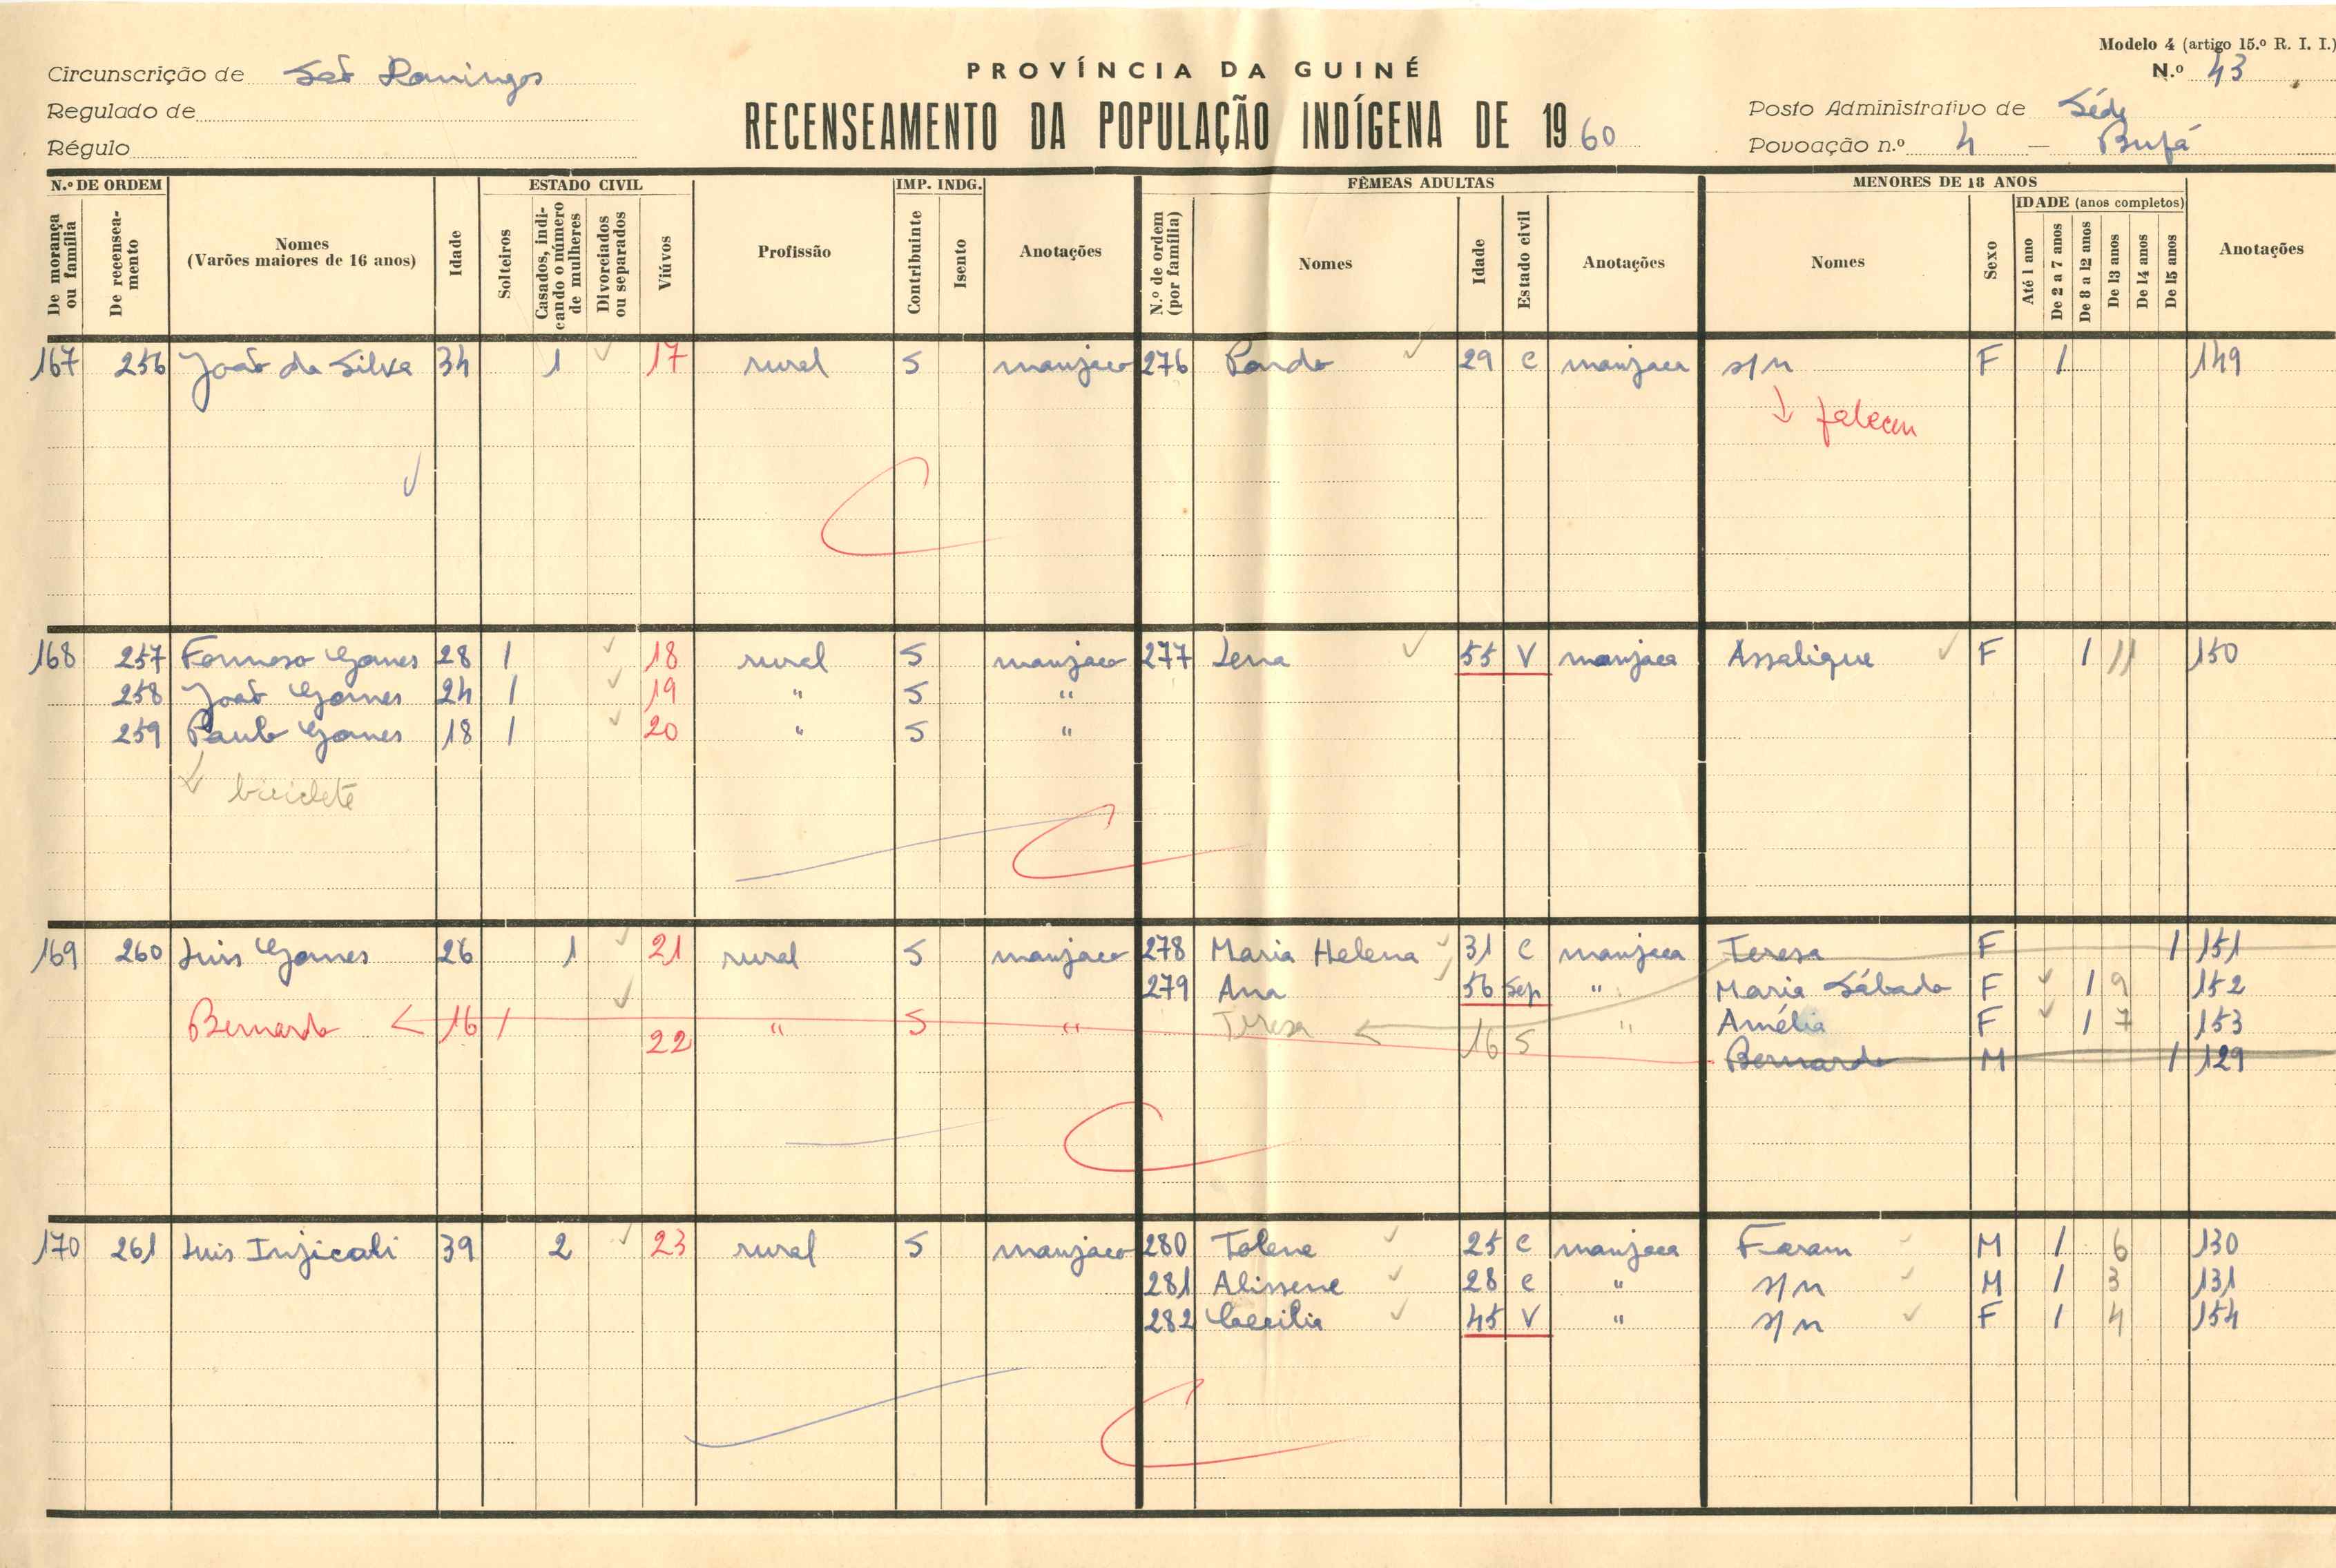 Modelo 4 (artigo 15.º R. I. I.)
Circunscrição de São Domingos
PROVÍNCIA DA GUINÉ
N.º 43
Regulado de
RECENSEAMENTO DA POPULAÇÃO INDÍGENA DE 1960
Posto Administrativo de Séde
Régulo
Povoação n.º 4 — Bufá
N.º DE ORDEM
ESTADO CIVIL
IMP. INDG.
FÊMEAS ADULTAS
MENORES DE 18 ANOS
De morança ou família
De recenseamento
Nomes
(Varões maiores de 16 anos)
Idade
Solteiros
Casados, indicando o número de mulheres
Divorciados ou separados
Viúvos
Profissão
Contribuinte
Isento
Anotações
N.º de ordem (por família)
Nomes
Idade
Estado civil
Anotações
Nomes
Sexo
IDADE (anos completos)
Até 1 ano
De 2 a 7 anos
De 8 a 12 anos
De 13 anos
De 14 anos
De 15 anos
Anotações
167 256 João da Silva 34 1 17 rural S manjaco 276 29 C manjaca s/n F 1 149
168 257 Formoso Gomes 28 1 18 rural S manjaco 277 Lena 55 V manjaca Assalique F 1 11 150
258 João Gomes 24 1 19 " S "
259 Paulo Gomes 18 1 20 " S "
biciclete
169 260 Luis Gomes 26 1 21 rural S manjaco 278 Maria Helena 31 C manjaca Teresa F 1 151
279 Ana 56 Sep " Maria Sábado F 1 9 152
Bernardo 16 1 22 " S " Teresa 16 S " Amélia F 1 7 153
Bernardo M 1 129
170 261 Luis Injicali 39 2 23 rural S manjaco 280 Tolene 25 C manjaca Faram M 1 6 130
281 Alissene 28 C " s/n M 1 3 131
282 Caecilia 45 V " s/n F 1 4 154